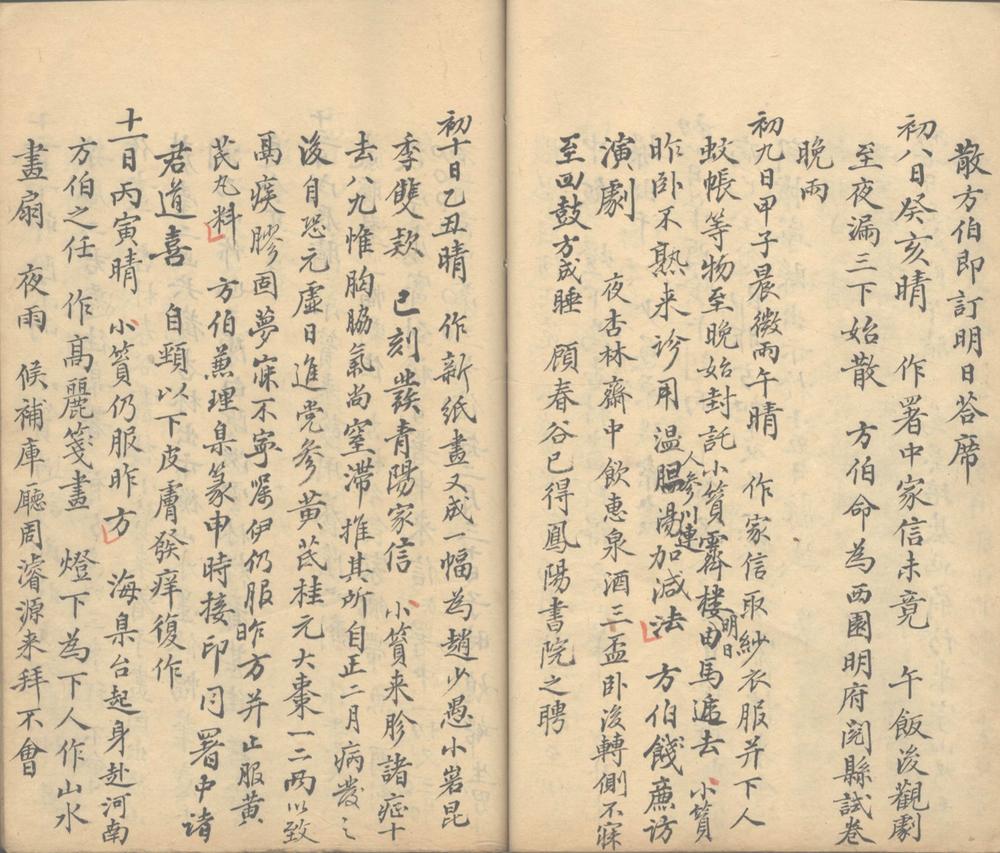 散方伯即訂明日答席
初八日癸亥晴　作署中家信未竟　午飯後觀劇
至夜漏三下始散　方伯命為西園明府閱縣試卷
晚雨
初九日甲子晨微雨午晴　作家信取紗衣服并下人
蚊帳等物至晚始封託小篔霽樓明日由馬遞去　小篔
昨卧不熟来診用溫膽湯加減法人參川連　方伯餞廉访
演劇　夜杏林齋中飲惠泉酒三盃卧後轉側不寐
至四鼓方成睡　顧春谷已得鳳陽書院之聘
初十日乙丑晴　作新紙畫又成一幅為趙少愚小嵓昆
季雙款　巳刻發青陽家信　小篔来胗諸症十
去八九惟胸脇氣尚窒滯推其所自正二月病發之
後自恐元虛日進党參黃芪桂元大棗一二两以致
鬲疾膠固夢寐不寧囑伊仍服昨方并止服黃
芪丸料　方伯蕉理臬篆申時接印同署中诸
君道喜　自頸以下皮膚發痒復作
十一日丙寅晴　小篔仍服昨方　海臬台起身赴河南
方伯之任　作高麗箋畫　燈下為下人作山水
畫扇　夜雨　候補庫廳周濬源来拜不會